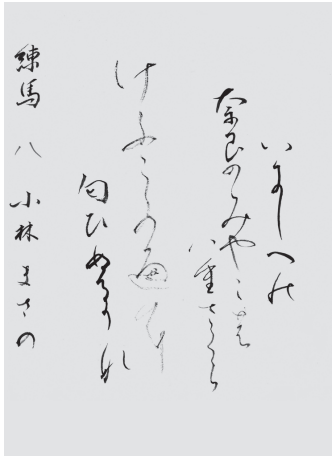 いにしへの
奈良のみやこの
八重さくら
けふこゝのへに
匂ひぬるかな
練馬 八 小林まさの